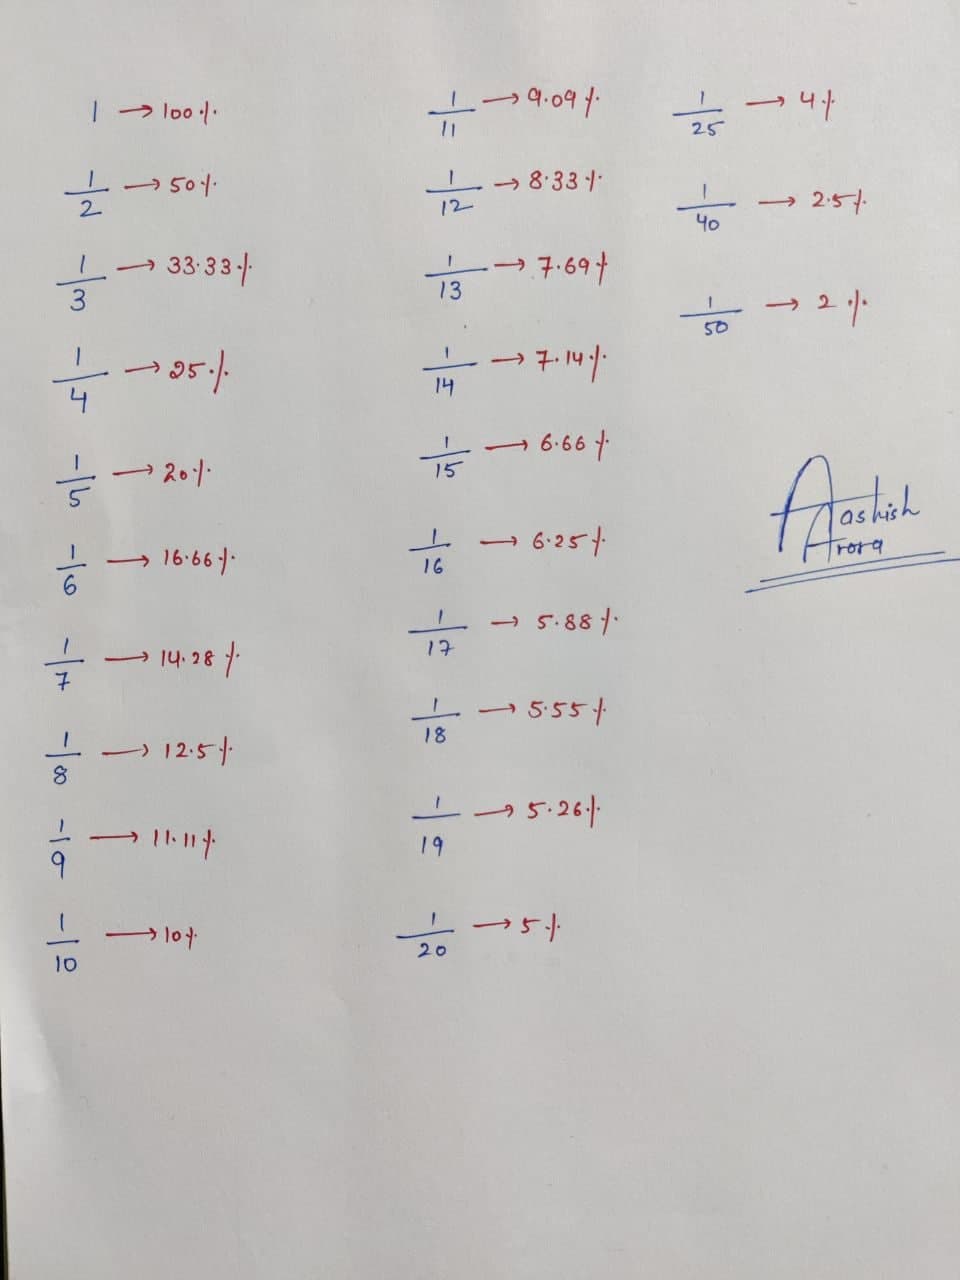 1 → 100%
1/2 → 50%
1/3 → 33.33%
1/4 → 25%
1/5 → 20%
1/6 → 16.66%
1/7 → 14.28%
1/8 → 12.5%
1/9 → 11.11%
1/10 → 10%
1/11 → 9.09%
1/12 → 8.33%
1/13 → 7.69%
1/14 → 7.14%
1/15 → 6.66%
1/16 → 6.25%
1/17 → 5.88%
1/18 → 5.55%
1/19 → 5.26%
1/20 → 5%
1/25 → 4%
1/40 → 2.5%
1/50 → 2%
Aashish
Arora